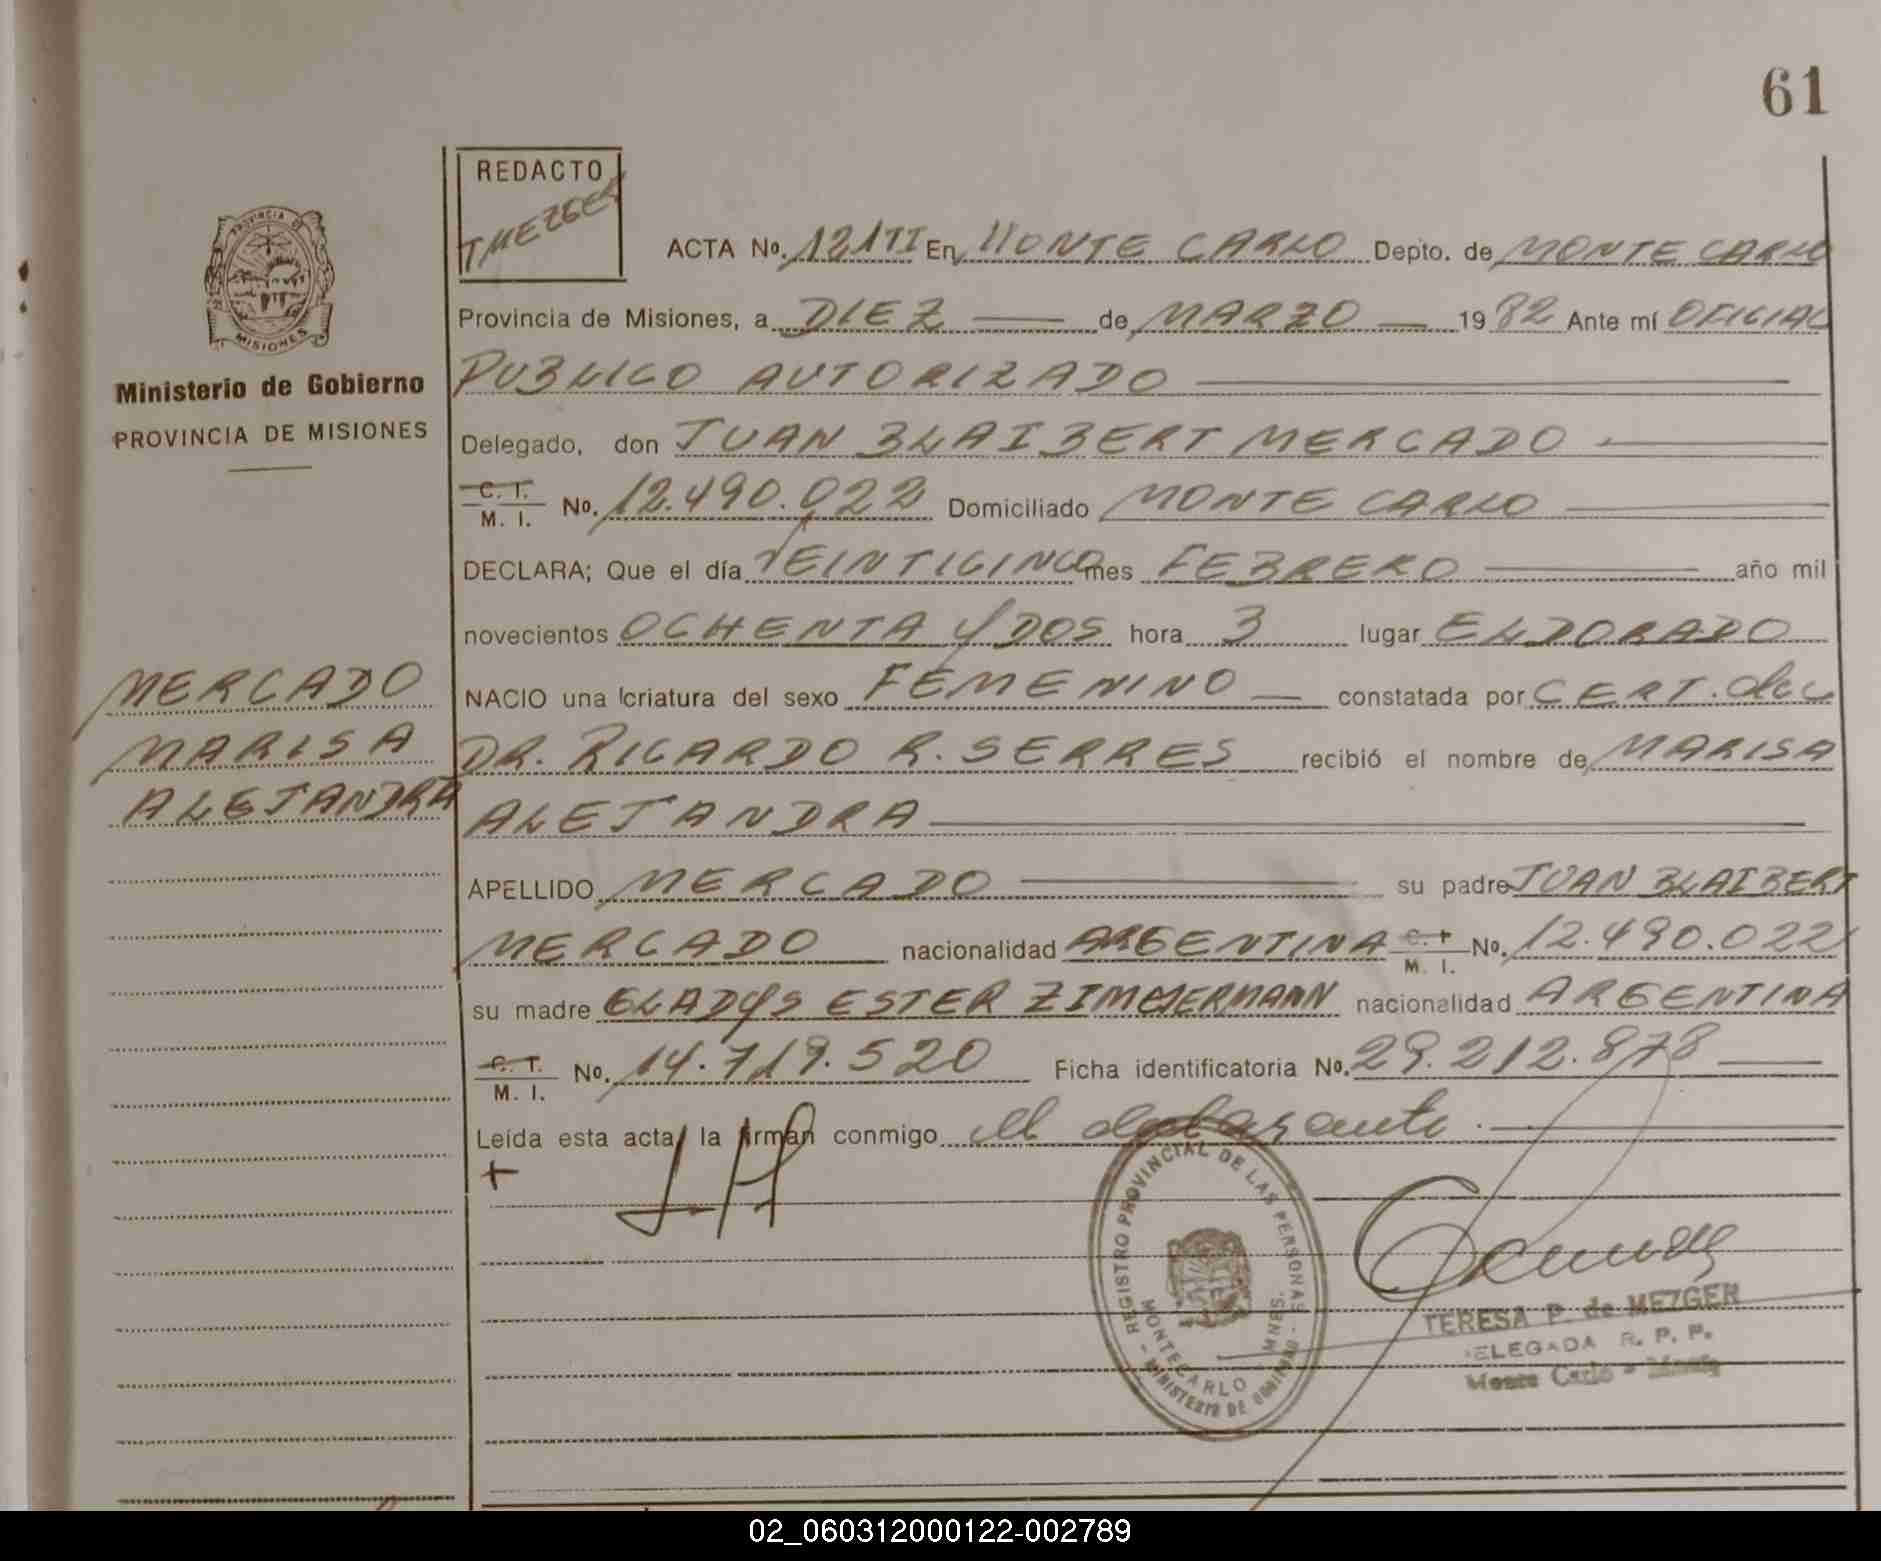 61
REDACTO
TMEZGER
PROVINCIA DE
MISIONES
Ministerio de Gobierno
PROVINCIA DE MISIONES
ACTA No. 121TI En MONTE CARLO Depto. de MONTE CARLO
Provincia de Misiones, a DIEZ — de MARZO — 1982 Ante mí OFICIAL
PUBLICO AUTORIZADO
Delegado, don JUAN BLAIBERT MERCADO
C. I.
M. I. No. 12.490.022 Domiciliado MONTE CARLO
DECLARA; Que el día VEINTICINCO mes FEBRERO — año mil
novecientos OCHENTA y DOS hora 3 lugar ELDORADO
NACIO una criatura del sexo FEMENINO — constatada por CERT. del
DR. RICARDO R. SERRES recibió el nombre de MARISA
ALEJANDRA
APELLIDO MERCADO — su padre JUAN BLAIBERT
MERCADO nacionalidad ARGENTINA C. I.
M. I. No. 12.490.022
su madre GLADYS ESTER ZIMMERMANN nacionalidad ARGENTINA
C. I.
M. I. No. 14.719.520 Ficha identificatoria No. 29.212.878
Leída esta acta, la firman conmigo el declarante.
MERCADO
MARISA
ALEJANDRA
REGISTRO PROVINCIAL DE LAS PERSONAS
MONTECARLO - MNES.
MINISTERIO DE GOBIERNO
TERESA P. de MEZGER
DELEGADA R. P. P.
Monte Carlo - Mnes
02_060312000122-002789